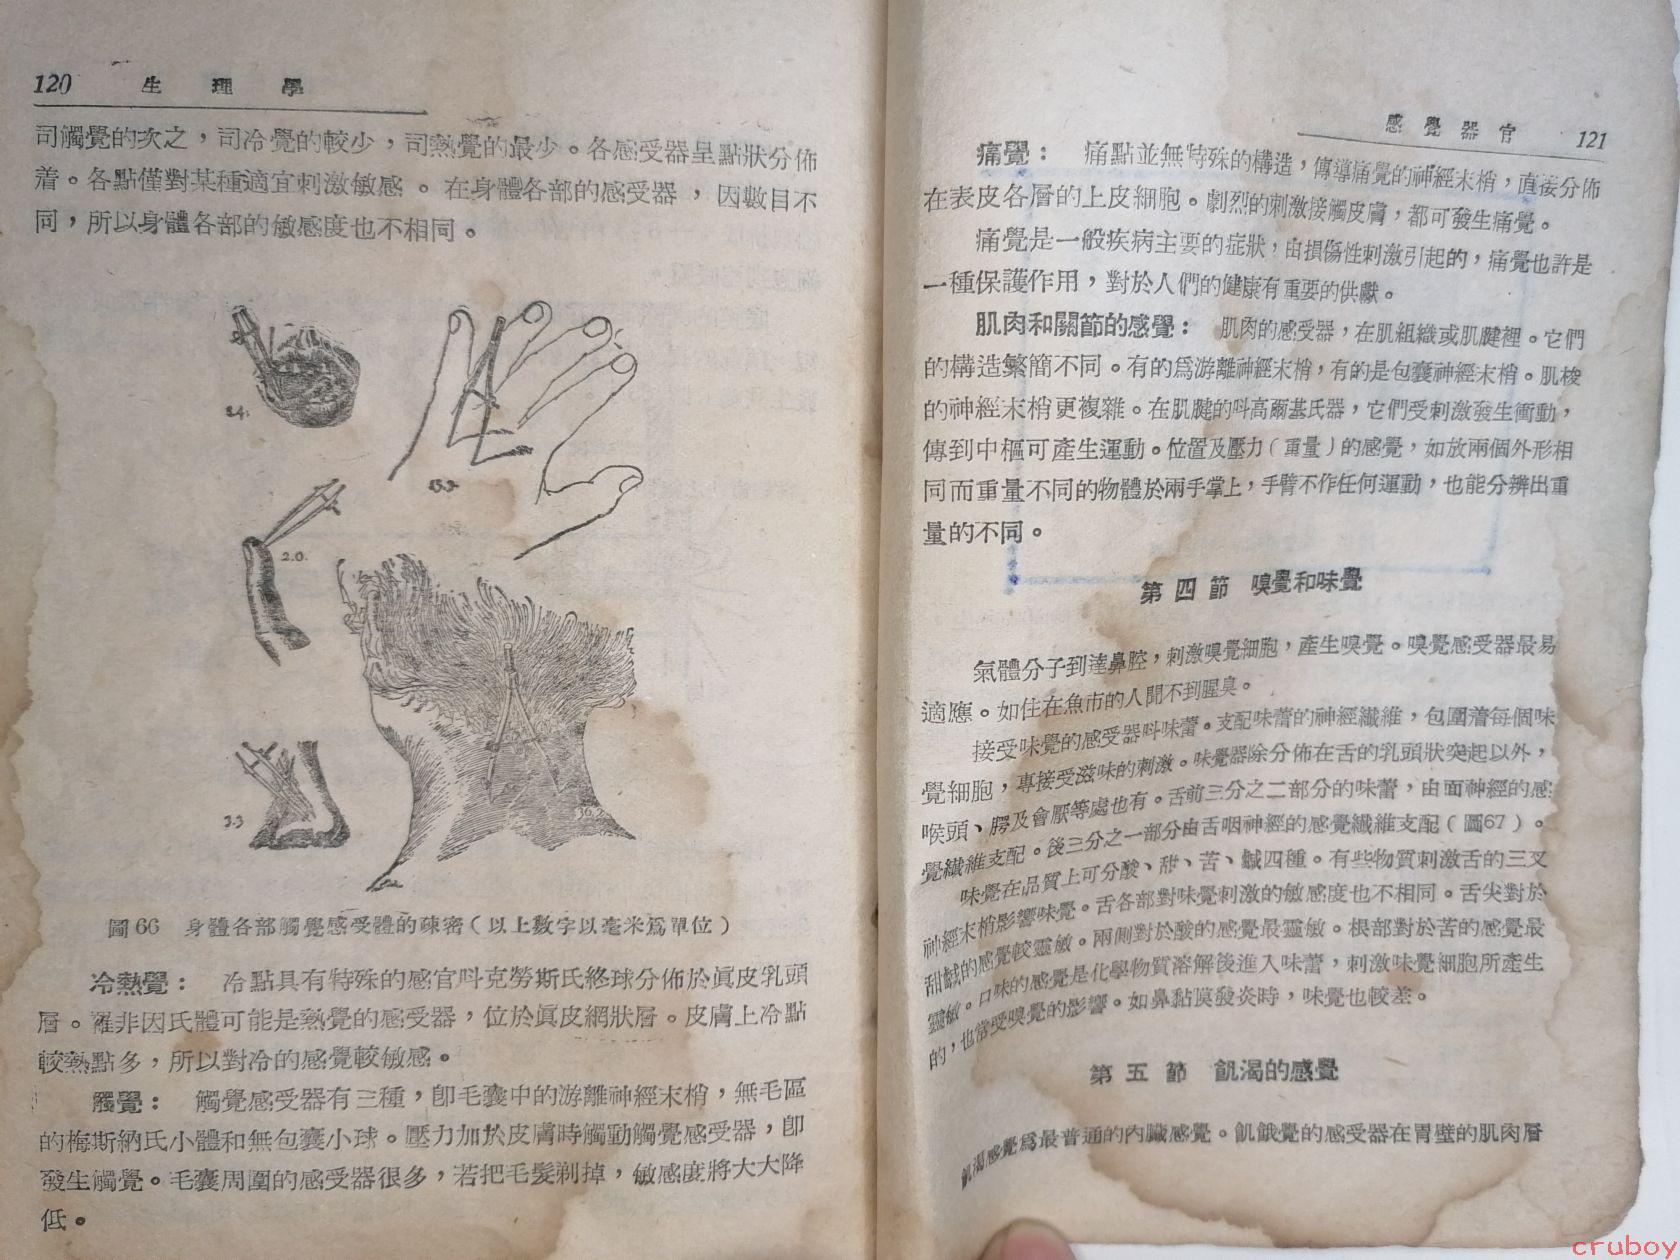 120 生理學
司觸覺的次之，司冷覺的較少，司熱覺的最少。各感受器呈點狀分佈
着。各點僅對某種適宜刺激敏感。在身體各部的感受器，因數目不
同，所以身體各部的敏感度也不相同。
24.
15.3
2.0.
3.3
36.2
圖66 身體各部觸覺感受體的疎密（以上數字以毫米爲單位）
冷熱覺： 冷點具有特殊的感官呌克勞斯氏終球分佈於眞皮乳頭
層。羅非因氏體可能是熱覺的感受器，位於眞皮網狀層。皮膚上冷點
較熱點多，所以對冷的感覺較敏感。
觸覺： 觸覺感受器有三種，卽毛囊中的游離神經末梢，無毛區
的梅斯納氏小體和無包囊小球。壓力加於皮膚時觸動觸覺感受器，卽
發生觸覺。毛囊周圍的感受器很多，若把毛髮剃掉，敏感度將大大降
低。
感覺器官 121
痛覺： 痛點並無特殊的構造，傳導痛覺的神經末梢，直接分佈
在表皮各層的上皮細胞。劇烈的刺激接觸皮膚，都可發生痛覺。
痛覺是一般疾病主要的症狀，由損傷性刺激引起的，痛覺也許是
一種保護作用，對於人們的健康有重要的供獻。
肌肉和關節的感覺： 肌肉的感受器，在肌組織或肌腱裡。它們
的構造繁簡不同。有的爲游離神經末梢，有的是包囊神經末梢。肌梭
的神經末梢更複雜。在肌腱的呌高爾基氏器，它們受刺激發生衝動，
傳到中樞可產生運動。位置及壓力（重量）的感覺，如放兩個外形相
同而重量不同的物體於兩手掌上，手臂不作任何運動，也能分辨出重
量的不同。
第四節 嗅覺和味覺
氣體分子到達鼻腔，刺激嗅覺細胞，產生嗅覺。嗅覺感受器最易
適應。如住在魚市的人聞不到腥臭。
接受味覺的感受器呌味蕾。支配味蕾的神經纖維，包圍着每個味
覺細胞，專接受滋味的刺激。味覺器除分佈在舌的乳頭狀突起以外，
喉頭、腭及會厭等處也有。舌前三分之二部分的味蕾，由面神經的感
覺纖維支配。後三分之一部分由舌咽神經的感覺纖維支配（圖67）。
味覺在品質上可分酸、甜、苦、鹹四種。有些物質刺激舌的三叉
神經末梢影響味覺。舌各部對味覺刺激的敏感度也不相同。舌尖對於
甜鹹的感覺較靈敏。兩側對於酸的感覺最靈敏。根部對於苦的感覺最
靈敏。口味的感覺是化學物質溶解後進入味蕾，刺激味覺細胞所產生
的，也常受嗅覺的影響。如鼻黏膜發炎時，味覺也較差。
第五節 飢渴的感覺
飢渴感覺爲最普通的內臟感覺。飢餓覺的感受器在胃壁的肌肉層
cruboy